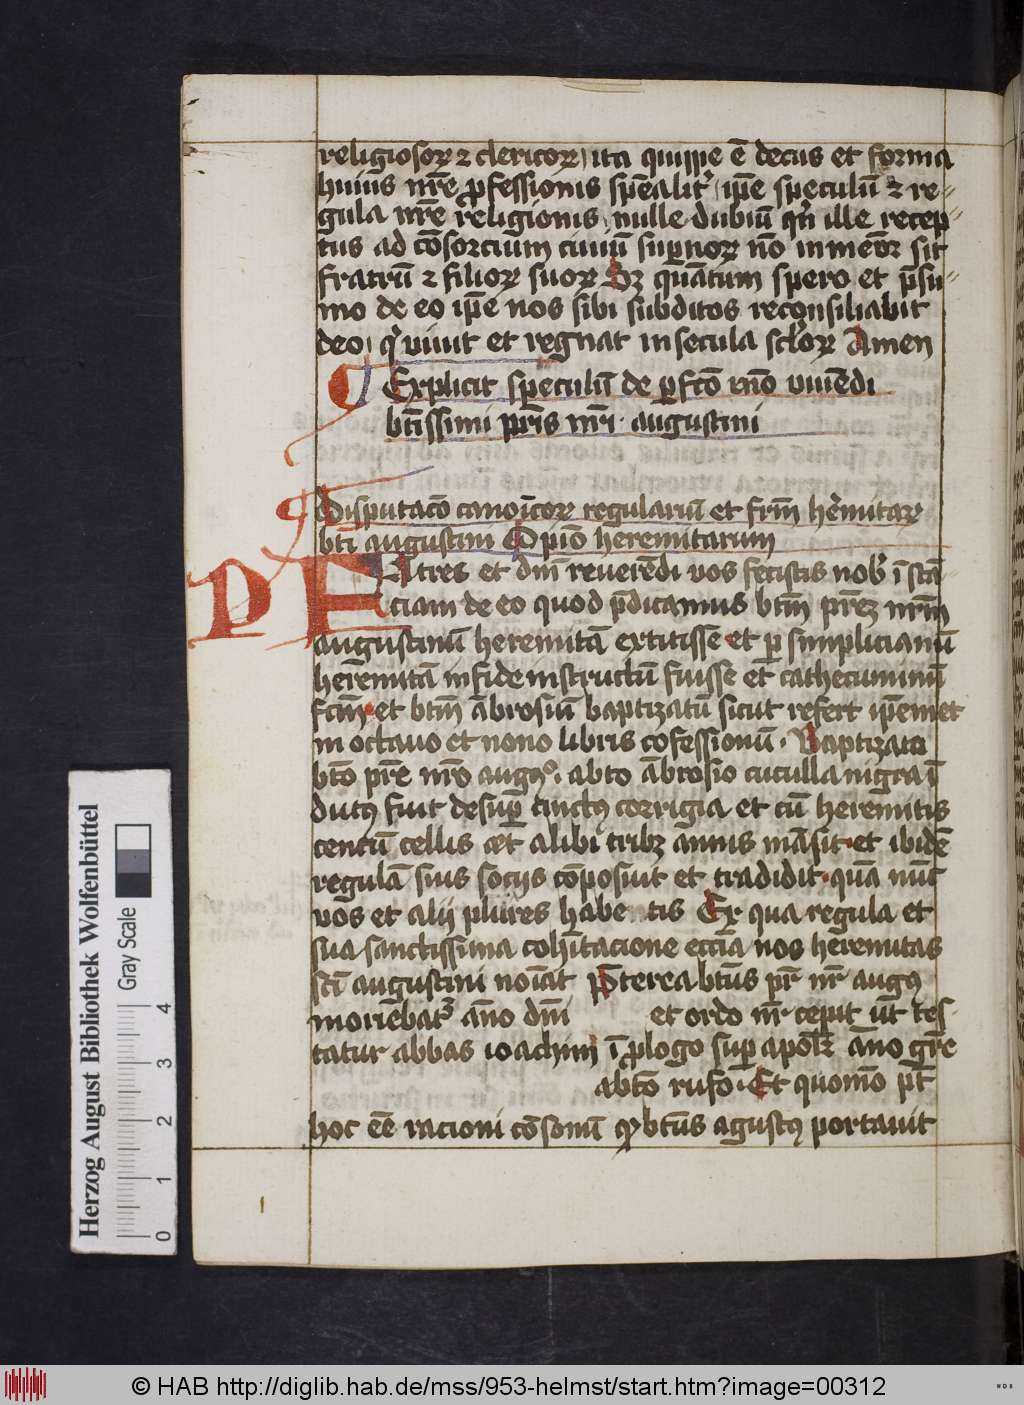 religiosoꝝ ⁊ clericoꝝ / ita quippe ē decus et forma
huius nr̄e ꝓfessionis spēalit᷑ / ip̄e speculū ⁊ re-
gula nr̄e religionis / nulle dubiū qn̄ ille recep-
tus ad cōsorcium ciuiū supnoꝝ nō inmēor sit
fratrū ⁊ filioꝝ suoꝝ Sꝫ quātum spero et p̄su-
mo de eo ip̄e nos sibi subditos reconsiliabit
deo / qͥ viuit et regnat in secula sclōꝝ Amen
Explicit speculū de ꝑfcō mō viuēdi
bt̄issimi pr̄is nr̄i · augustini
Disputacō canoīcoꝝ regulariū et frm̄ herēmitaꝝ
bt̄i augustini Opīo heremitarum
PAtres et dn̄i reuerēdi vos fecistis nob᷒ ī stā-
ciam de eo quod p̄dicamus btm̄ pr̄eꝫ nrm̄
augustinū heremitā extitisse et ꝑ simplicianū
herēmitā in fide instructū fuisse et cathecuminū
fcm̄ et btm̄ ābrosiū baptizatū sicut refert ip̄emet
in octauo et nono libris cōfessionū · Baptizato
bto pr̄e nr̄o augꝰ · abto ābrosio cuculla nigra ī
dutꝰ fuit desup̄ cinctꝰ corrigia et cū heremitis
centū cellis et alibi tribꝫ annis māsit · et ibidē
regulā suis socijs cōposuit et tradidit · quā nūc
vos et alij plures habentis Ex qua regula et
sua sanctissima cohītacione eccīa nos heremitas
scī augustini noīat P̄terea btūs pr̄ nr̄ augꝰ
moriēbat᷑ āno dn̄i et ordo nr̄ cepit ūt tes-
tatur abbas ioachim ī ꝓlogo suꝑ apoł āno gr̄e
abto rufo · Et quomō pt̄
hoc eē racioni cōsonū qꝫ btūs agustꝰ portauit
Herzog August Bibliothek Wolfenbüttel
Gray Scale
0 1 2 3 4
© HAB http://diglib.hab.de/mss/953-helmst/start.htm?image=00312